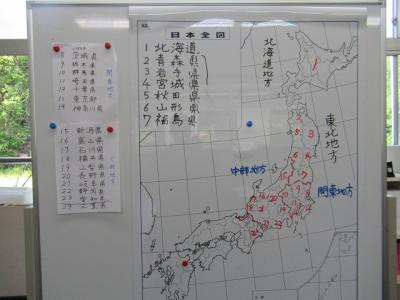 日本全図
1 北海道
2 青森県
3 岩手県
4 宮城県
5 秋田県
6 山形県
7 福島県
北海道地方
東北地方
中部地方
関東地方
8 茨城県
9 栃木県
10 群馬県
11 埼玉県
12 千葉県
13 東京都
14 神奈川県
関東地方
15 新潟県
16 富山県
17 石川県
18 福井県
19 山梨県
20 長野県
21 岐阜県
22 静岡県
23 愛知県
24 三重県
中部地方